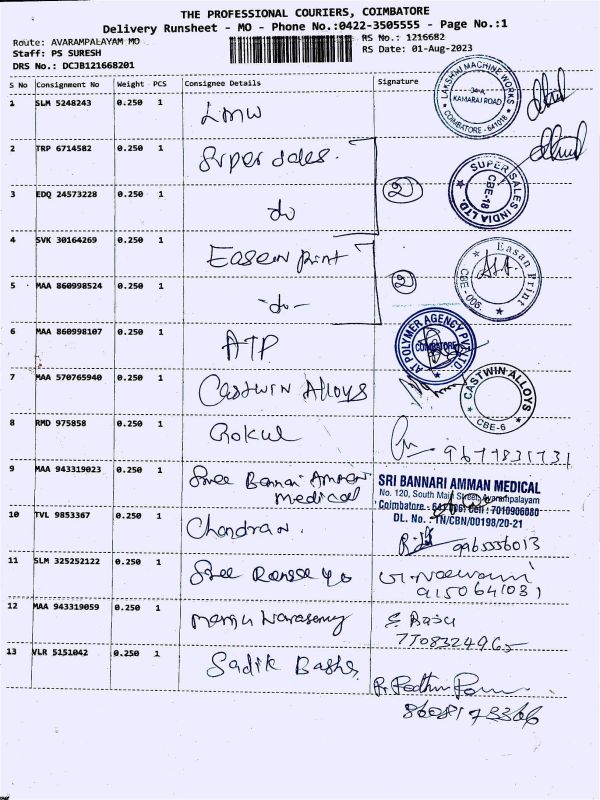 THE PROFESSIONAL COURIERS, COIMBATORE
Delivery Runsheet - MO - Phone No.:0422-3505555 - Page No.:1
Route: AVARAMPALAYAM MO
RS No.: 1216682
Staff: PS SURESH
RS Date: 01-Aug-2023
DRS No.: DCJB121668201
S No Consignment No Weight PCS Consignee Details Signature
1 SLM 5248243 0.250 1 LMW
LAKSHMI MACHINE WORKS
34-A,
KAMARAJ ROAD
COIMBATORE - 641018
2 TRP 6714582 0.250 1 Super Sales.
SUPER SALES INDIA LTD.
CBE-18
2
3 EDQ 24573228 0.250 1 do
4 SVK 30164269 0.250 1 Easan print
Easan Print
CBE - 006
2
5 MAA 860998524 0.250 1 -do-
6 MAA 860998107 0.250 1 ATP
AT POLYMER AGENCY PVT. LTD.
COIMBATORE
7 MAA 570765940 0.250 1 Castwin Alloys
CASTWIN ALLOYS
CBE-6
8 RMD 975858 0.250 1 Gokul
9677831731
9 MAA 943319023 0.250 1 Sree Bannari Amman
Medical
SRI BANNARI AMMAN MEDICAL
No. 120, South Main Street, Avarampalayam
Coimbatore - 641 006. Cell : 7010906080
DL. No. : TN/CBN/00198/20-21
10 TVL 9853367 0.250 1 Chandran.
9965556013
11 SLM 325252122 0.250 1 Sree
9150641031
12 MAA 943319059 0.250 1
S. Babu
7708324965
13 VLR 5151042 0.250 1 Sadik Basha